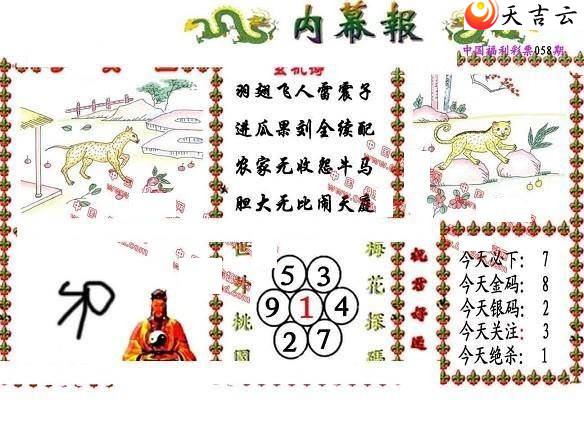 内幕報
天吉云
中国福利彩票058期
玄机诗
羽翅飞人雷震子
进瓜果刘全续配
农家无收怨牛马
胆大无比闹天庭
世外桃園
5 3
9 1 4
2 7
梅花探碼
祝君好运
今天必下: 7
今天金码: 8
今天银码: 2
今天关注: 3
今天绝杀: 1